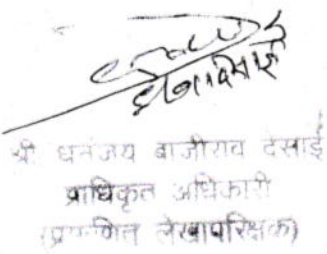 श्री धनंजय बाजीराव देसाई
प्राधिकृत अधिकारी
(प्रमाणित लेखापरिक्षक)